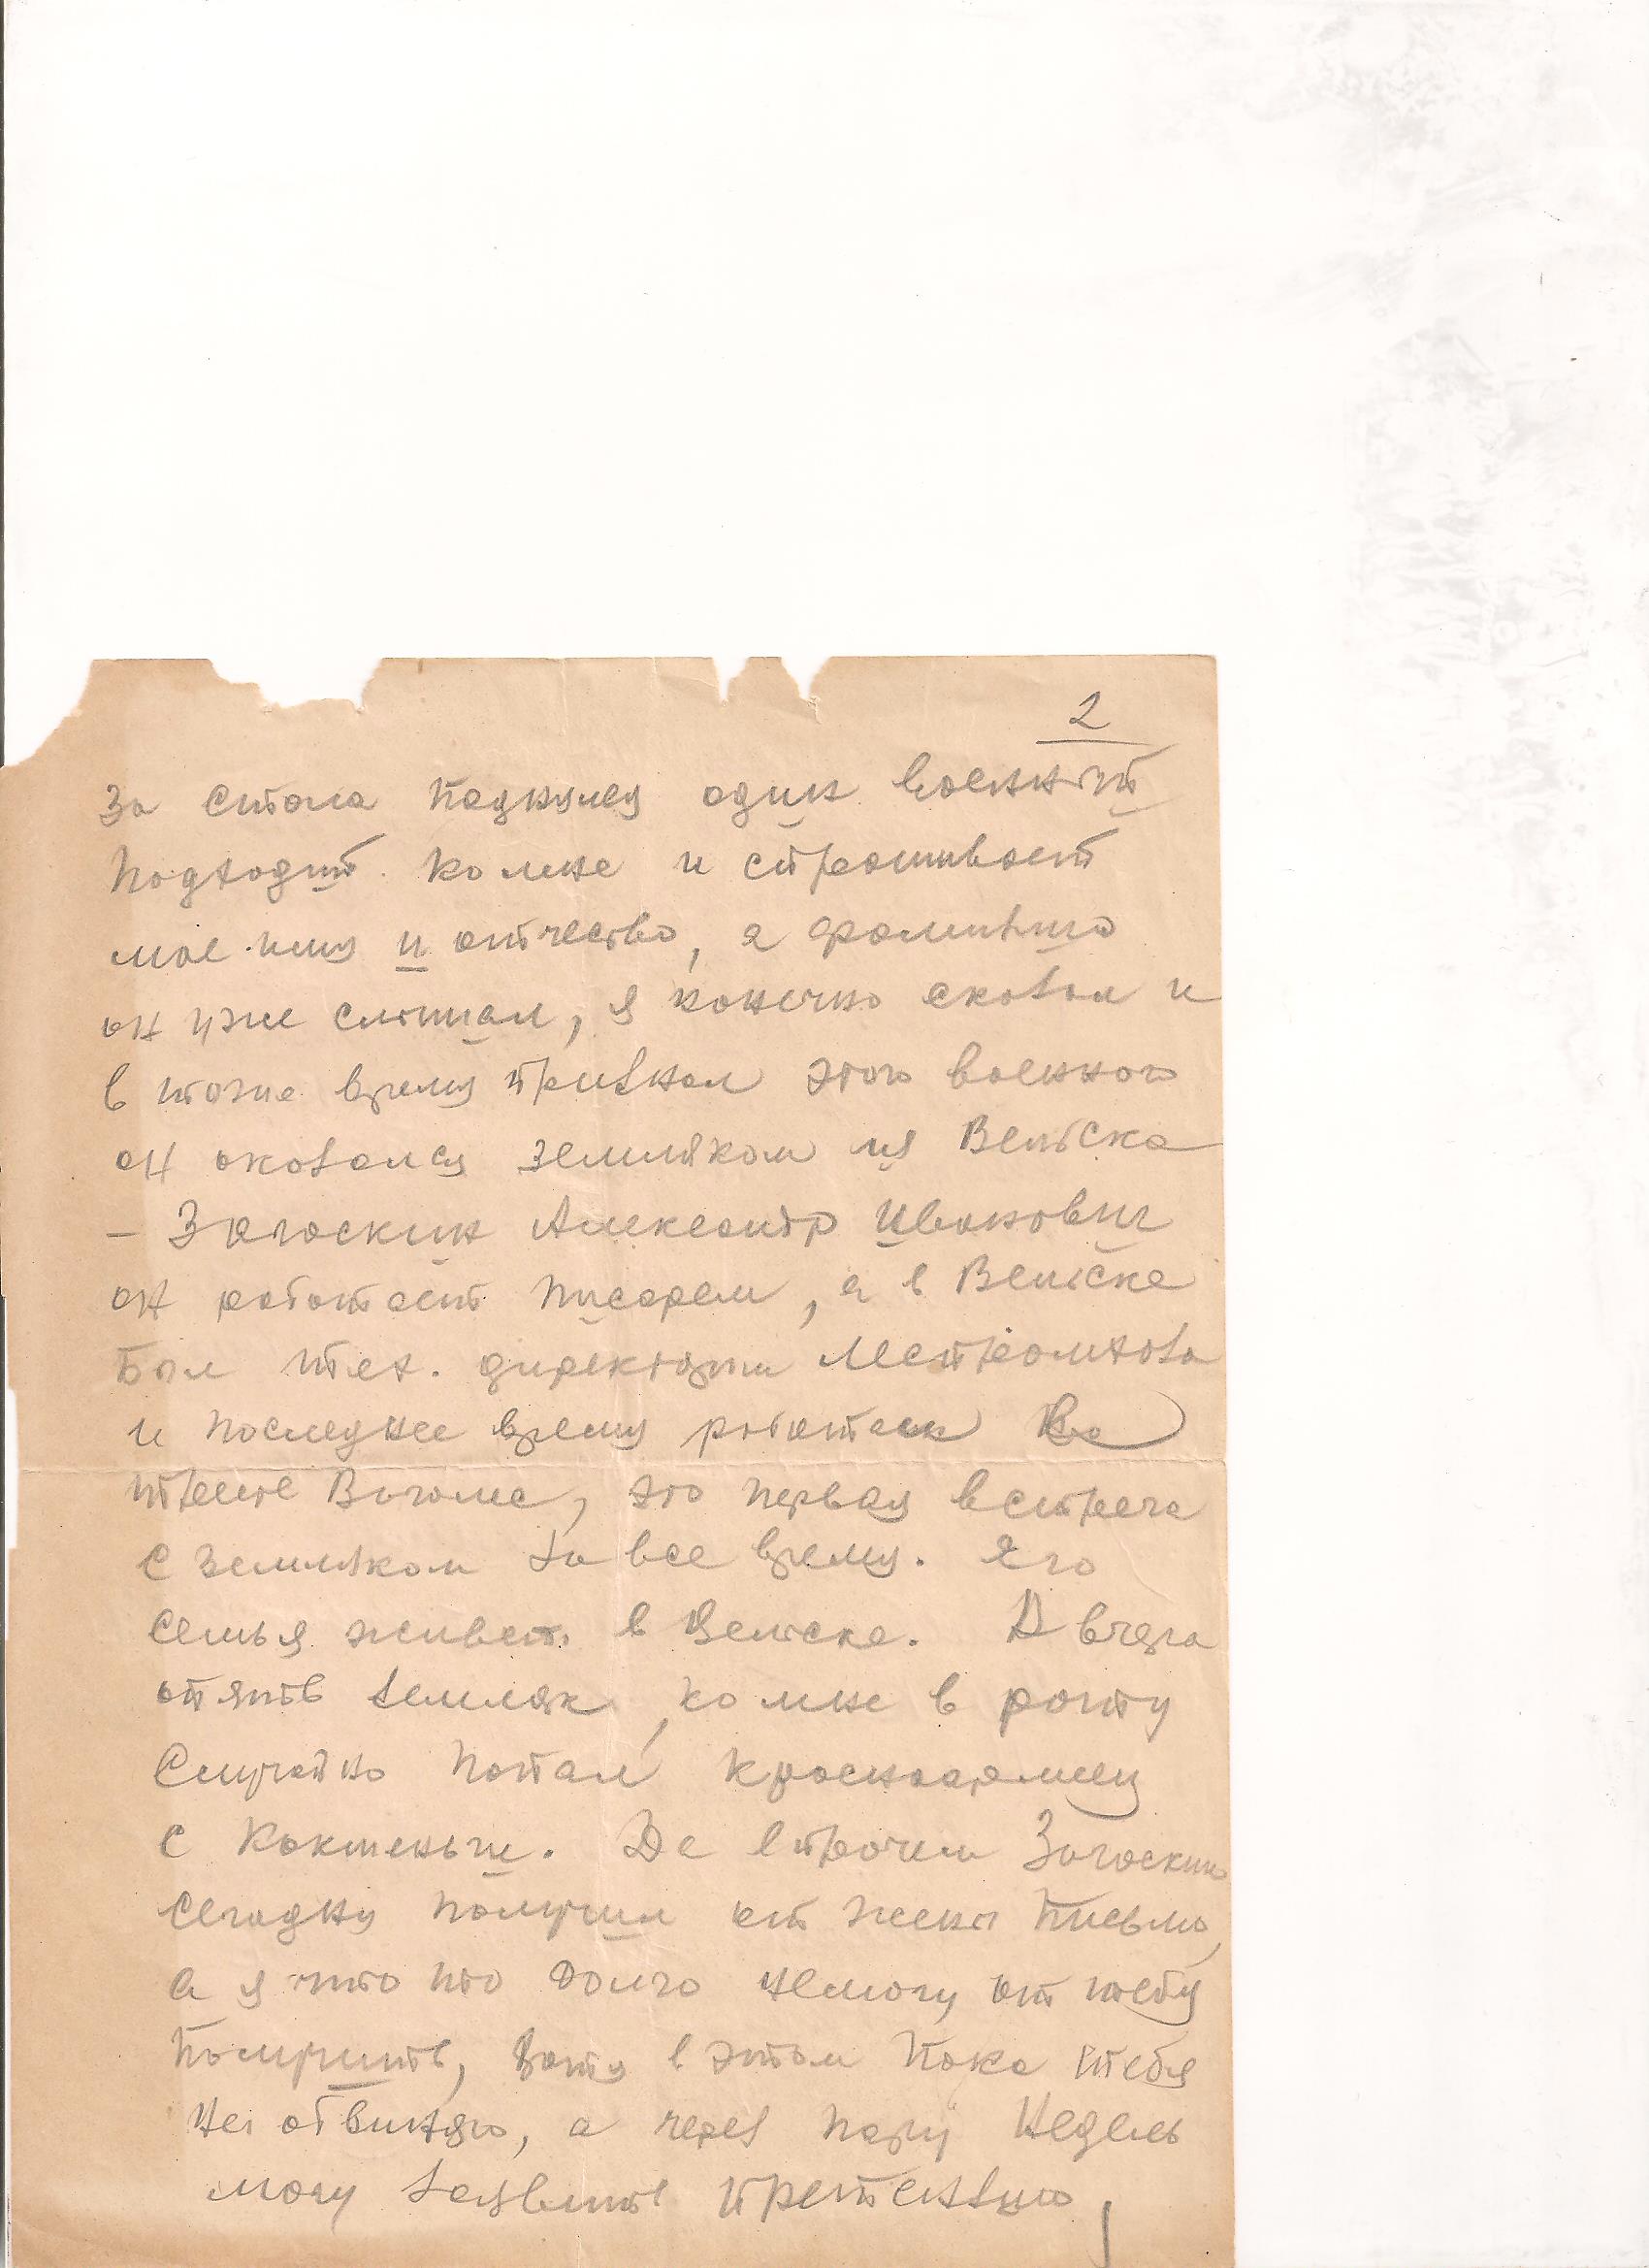 2
За стола поднялся один военный
подходит ко мне и спрашивает
мое имя и отчество, а фамилию
он уже слышал, я конечно сказал и
в тоже время признал этого военного
он оказался земляком из Вельска
— Загоскин Александр Иванович
он работает писарем, а в Вельске
был тех. директором Леспромхоза
и последнее время работал на
тресте, это первая встреча
с земляком за все время. Его
семья живет в Вельске. А вчера
опять земляк, ко мне в роту
случайно попал красноармеец
с Кокшеньги. Да впрочем Загоскин
сегодня получил от жены письмо,
а я что то долго немогу от тебя
получить, хотя в этом пока тебя
не обвиняю, а через пару недель
могу заявить претензию,